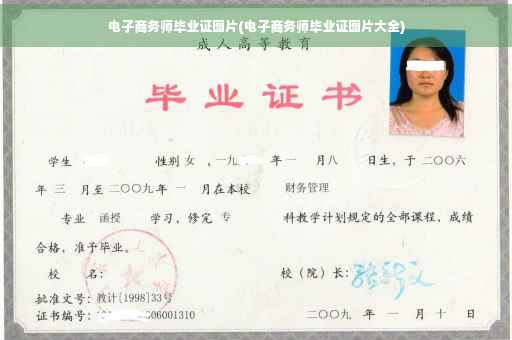 电子商务师毕业证图片(电子商务师毕业证图片大全)
成人高等教育
毕业证书
学生 性别 女 ，一九 年 一 月八 日生，于 二〇〇六
年 三 月至 二〇〇九 年 一 月在本校 财务管理
专业 函授 学习，修完 专 科教学计划规定的全部课程，成绩
合格，准予毕业。
校 名： 校（院）长：
批准文号：教计[1998]33号
证书编号： 06001310 二〇〇九 年 一 月 十 日